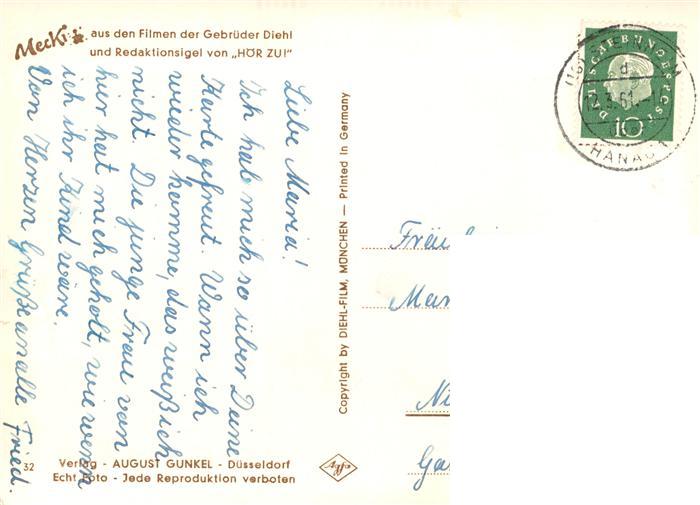 Mecki aus den Filmen der Gebrüder Diehl
und Redaktionsigel von „HÖR ZU!"
Liebe Maria!
Ich hab mich so über Deine
Karte gefreut. Wann ich
wieder komme, das weiß ich
nicht. Die junge Frau von
hier hat mich geholt, wie wenn
ich ihr Kind wäre.
Von Herzen Grüße an alle Fried.
32
Verlag - AUGUST GUNKEL - Düsseldorf
Echt Foto - Jede Reproduktion verboten
Agfa
Copyright by DIEHL-FILM, MÜNCHEN — Printed in Germany
DEUTSCHE BUNDESPOST
10
d
12.3.61.-1
HANAU 1